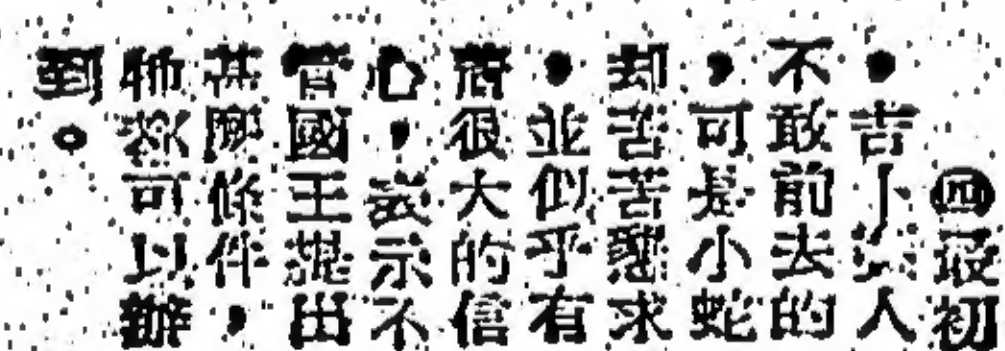 ㊃最初
，吉卜人
不敢前去的
，可是小蛇
却苦苦懇求
，並似乎有
着很大的信
心，表示不
管國王提出
甚麼條件，
牠可以辦
到。